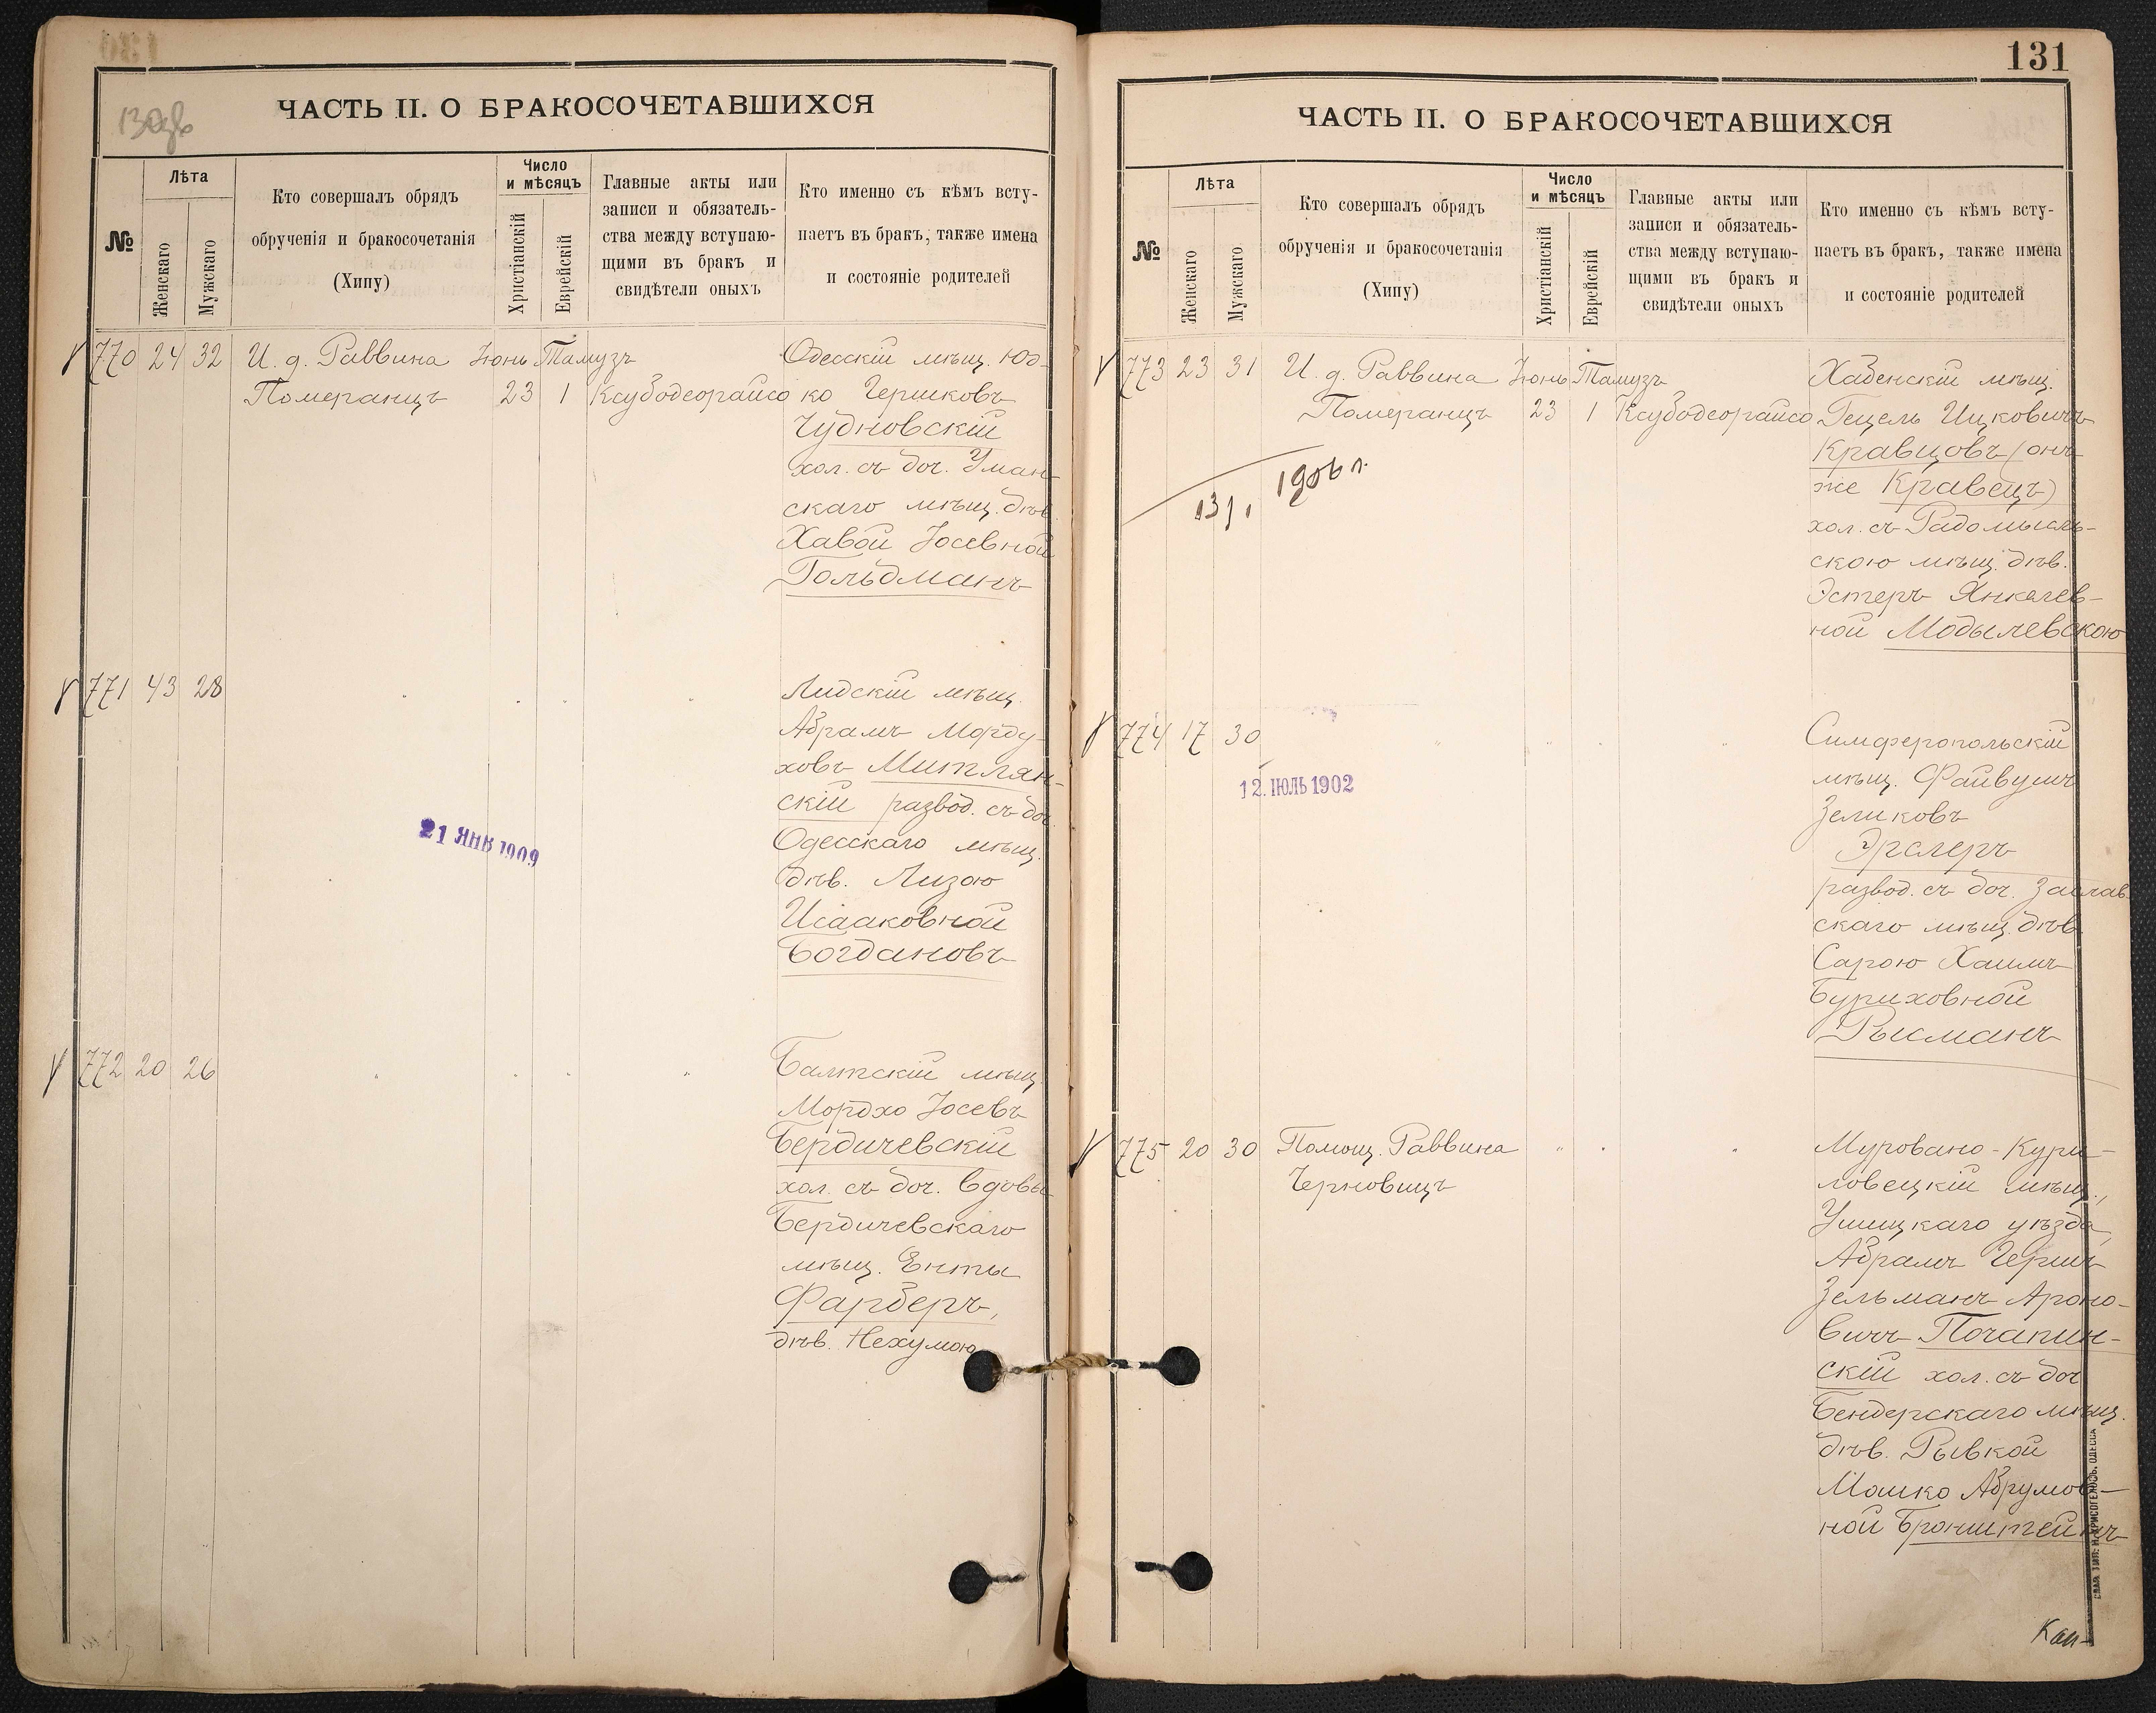 130об
ЧАСТЬ II. О БРАКОСОЧЕТАВШИХСЯ
№
Лѣта
Женскаго
Мужскаго
Кто совершалъ обрядъ
обрученія и бракосочетанія
(Хипу)
Число
и мѣсяцъ
Христіанскій
Еврейскій
Главные акты или
записи и обязатель-
ства между вступаю-
щими въ бракъ и
свидѣтели оныхъ
Кто именно съ кѣмъ всту-
паетъ въ бракъ, также имена
и состояніе родителей
770 24 32 И. д. Раввина Іюнь Тамузъ Одесскій мѣщ. Юд-
Померанцъ 23 1 Ксубодеорайсо ко Гершковъ
Чудновскій
хол. съ доч. Уман-
скаго мѣщ. дѣв.
Хавой Іосевной
Гольдманъ
771 43 28 Лидскій мѣщ.
Абрамъ Морду-
ховъ Митлян-
скій развод. съ доч.
Одесскаго мѣщ.
дѣв. Лизою
Исааковной
Богдановъ
21 ЯНВ 1909
772 20 26 Балтскій мѣщ.
Мордхо Іосевъ
Бердичевскій
хол. съ доч. вдовы
Бердичевскаго
мѣщ. Енты
Фарберъ,
дѣв. Нехумою
131
ЧАСТЬ II. О БРАКОСОЧЕТАВШИХСЯ
№
Лѣта
Женскаго
Мужскаго
Кто совершалъ обрядъ
обрученія и бракосочетанія
(Хипу)
Число
и мѣсяцъ
Христіанскій
Еврейскій
Главные акты или
записи и обязатель-
ства между вступаю-
щими въ бракъ и
свидѣтели оныхъ
Кто именно съ кѣмъ всту-
паетъ въ бракъ, также имена
и состояніе родителей
773 23 31 И. д. Раввина Іюнь Тамузъ Хабенскій мѣщ.
Померанцъ 23 1 Ксубодеорайсо Гецель Ицковичъ
Кравцовъ (онъ
же Кравецъ)
хол. съ Радомысль-
скою мѣщ. дѣв.
Эстеръ Янкелев-
ной Модылевскою
1906 г.
774 17 30 Симферопольскій
мѣщ. Файвушъ
Зеликовъ
Эрслеръ
развод. съ доч. Заслав-
скаго мѣщ. дѣв.
Сарою Хаимъ
Буриховной
Рысманъ
12. ІЮЛЬ 1902
775 20 30 Помощ. Раввина Муровано-Кури-
Черновицъ ловецкій мѣщ.,
Ушицкаго уѣзда,
Абрамъ Гершъ
Зельманъ Ароно-
вичъ Почапин-
скій хол. съ доч
Бендерскаго мѣщ.
дѣв. Рывкой
Машко Абрумов-
ной Бронштейнъ
Кан-